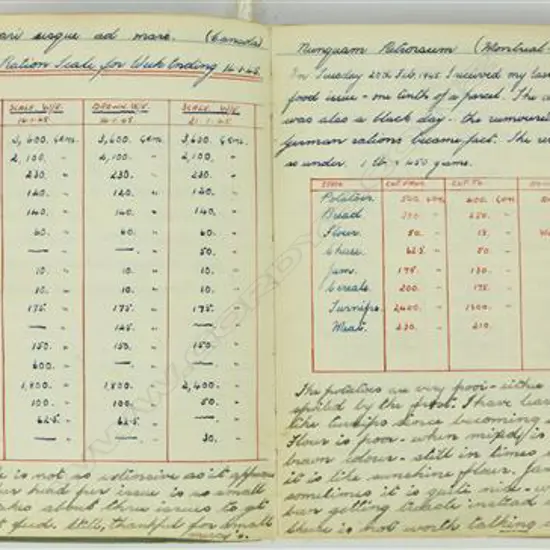 ari usque ad mare. (Canada)
Ration Scale for Week Ending 14.1.45.
SCALE W/E. DRAWN W/E. SCALE W/E.
14.1.45. 14.1.45. 21.1.45.
3,600. GRMS. 3,600. GRMS. 3,600. GRMS.
2,100. " 2,100. " 2,100. "
230. " 230. " 230. "
120. " 120. " 120. "
140. " 140. " 140. "
60. " 60. " 60. "
— " — " 50. "
10. " 10. " 10. "
10. " 10. " 10. "
175. " 175. " 175. "
— " 145. " — "
150. " 150. " 150. "
600. " — " — "
1,800. " 1,800. " 2,400. "
100. " 100. " 50. "
62.5. " 62.5. " — "
— " — " 30. "
is not as extensive as it appears
our hut per issue is so small
takes about three issues to get
feed. Still, thankful for small
mercies.
Nunquam Retrorsum (Montreal
On Tuesday 20th Feb. 1945 I received my last
food issue - one tenth of a parcel. The
was also a black day - the rumoured
German rations became fact. The
as under. 1 lb = 450 grams.
ITEM. CUT FROM. CUT TO.
Potatoes. 400. GRM
Bread.
Flour. 50. "
Cheese. 62.5 " 50. "
Jam. 175. " 130. "
Cereals. 200. " 175. "
Turnips. 2400. " 1800. "
Meat. 230. " 210. "
The potatoes are very poor - either
spoiled by the frost. I have
like turnips since becoming
Flour is poor - when mixed is
brown colour - still in times
it is like sunshine flour. Jam
sometimes it is quite nice
but getting treacle instead
there is not worth talking